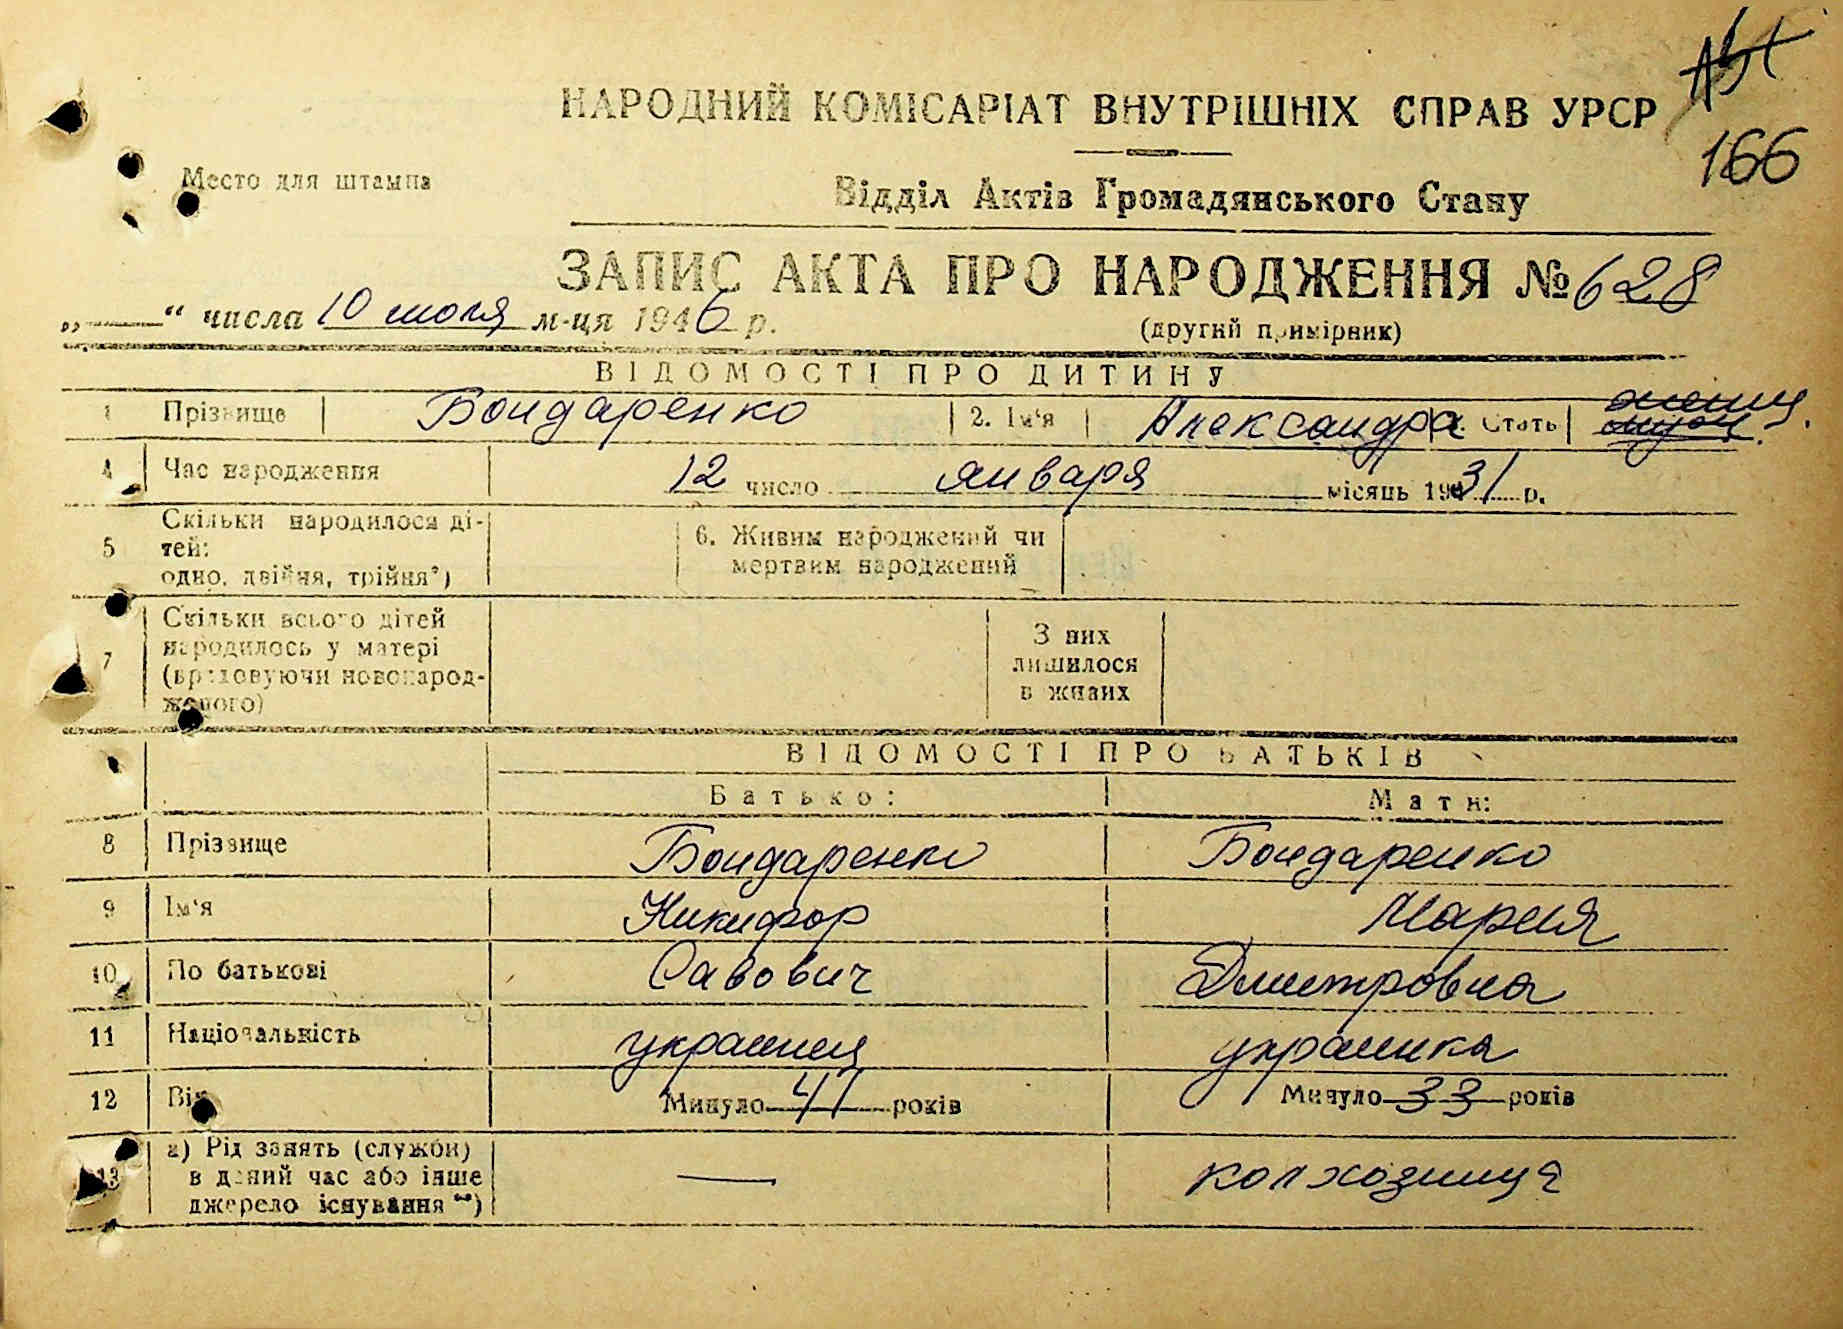 166
НАРОДНИЙ КОМІСАРІАТ ВНУТРІШНІХ СПРАВ УРСР
Место для штампа
Відділ Актів Громадянського Стану
ЗАПИС АКТА ПРО НАРОДЖЕННЯ № 628
„ “ числа 10 июля м-ця 1946 р.
(другий примірник)
ВІДОМОСТІ ПРО ДИТИНУ
1 Прізвище Бондаренко 2. Ім‘я Александра 3. Стать женщ.
4 Час народження 12 число января місяць 1931 р.
5 Скільки народилося ді-
тей:
одно, двійня, трійня*)
6. Живим народжений чи
мертвим народжений
7 Скільки всього дітей
народилось у матері
(враховуючи новонарод-
женого)
З них
лишилося
в живих
ВІДОМОСТІ ПРО БАТЬКІВ
Батько: Мати:
8 Прізвище Бондаренко Бондаренко
9 Ім‘я Никифор Мария
10 По батькові Савович Дмитровна
11 Національність украинец украинка
12 Вік Минуло 41 років Минуло 33 років
13 а) Рід занять (служби)
в даний час або інше
джерело існування **)
— колхозница